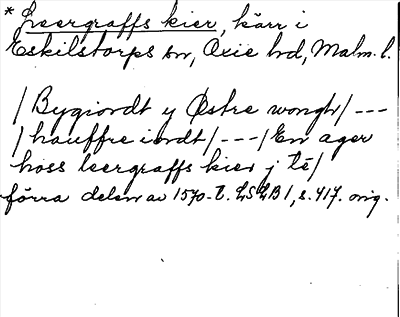 * Leergraffs kier, kärr i
Eskilstorps sn, Oxie hd, Malm. l.
/Bygiordt y Østre wongh/ ---
/hauffre iordt/ --- /En ager
hoss leergraffs kier j tē/
förra delen av 1570-t. LSLB 1, s. 417. orig.